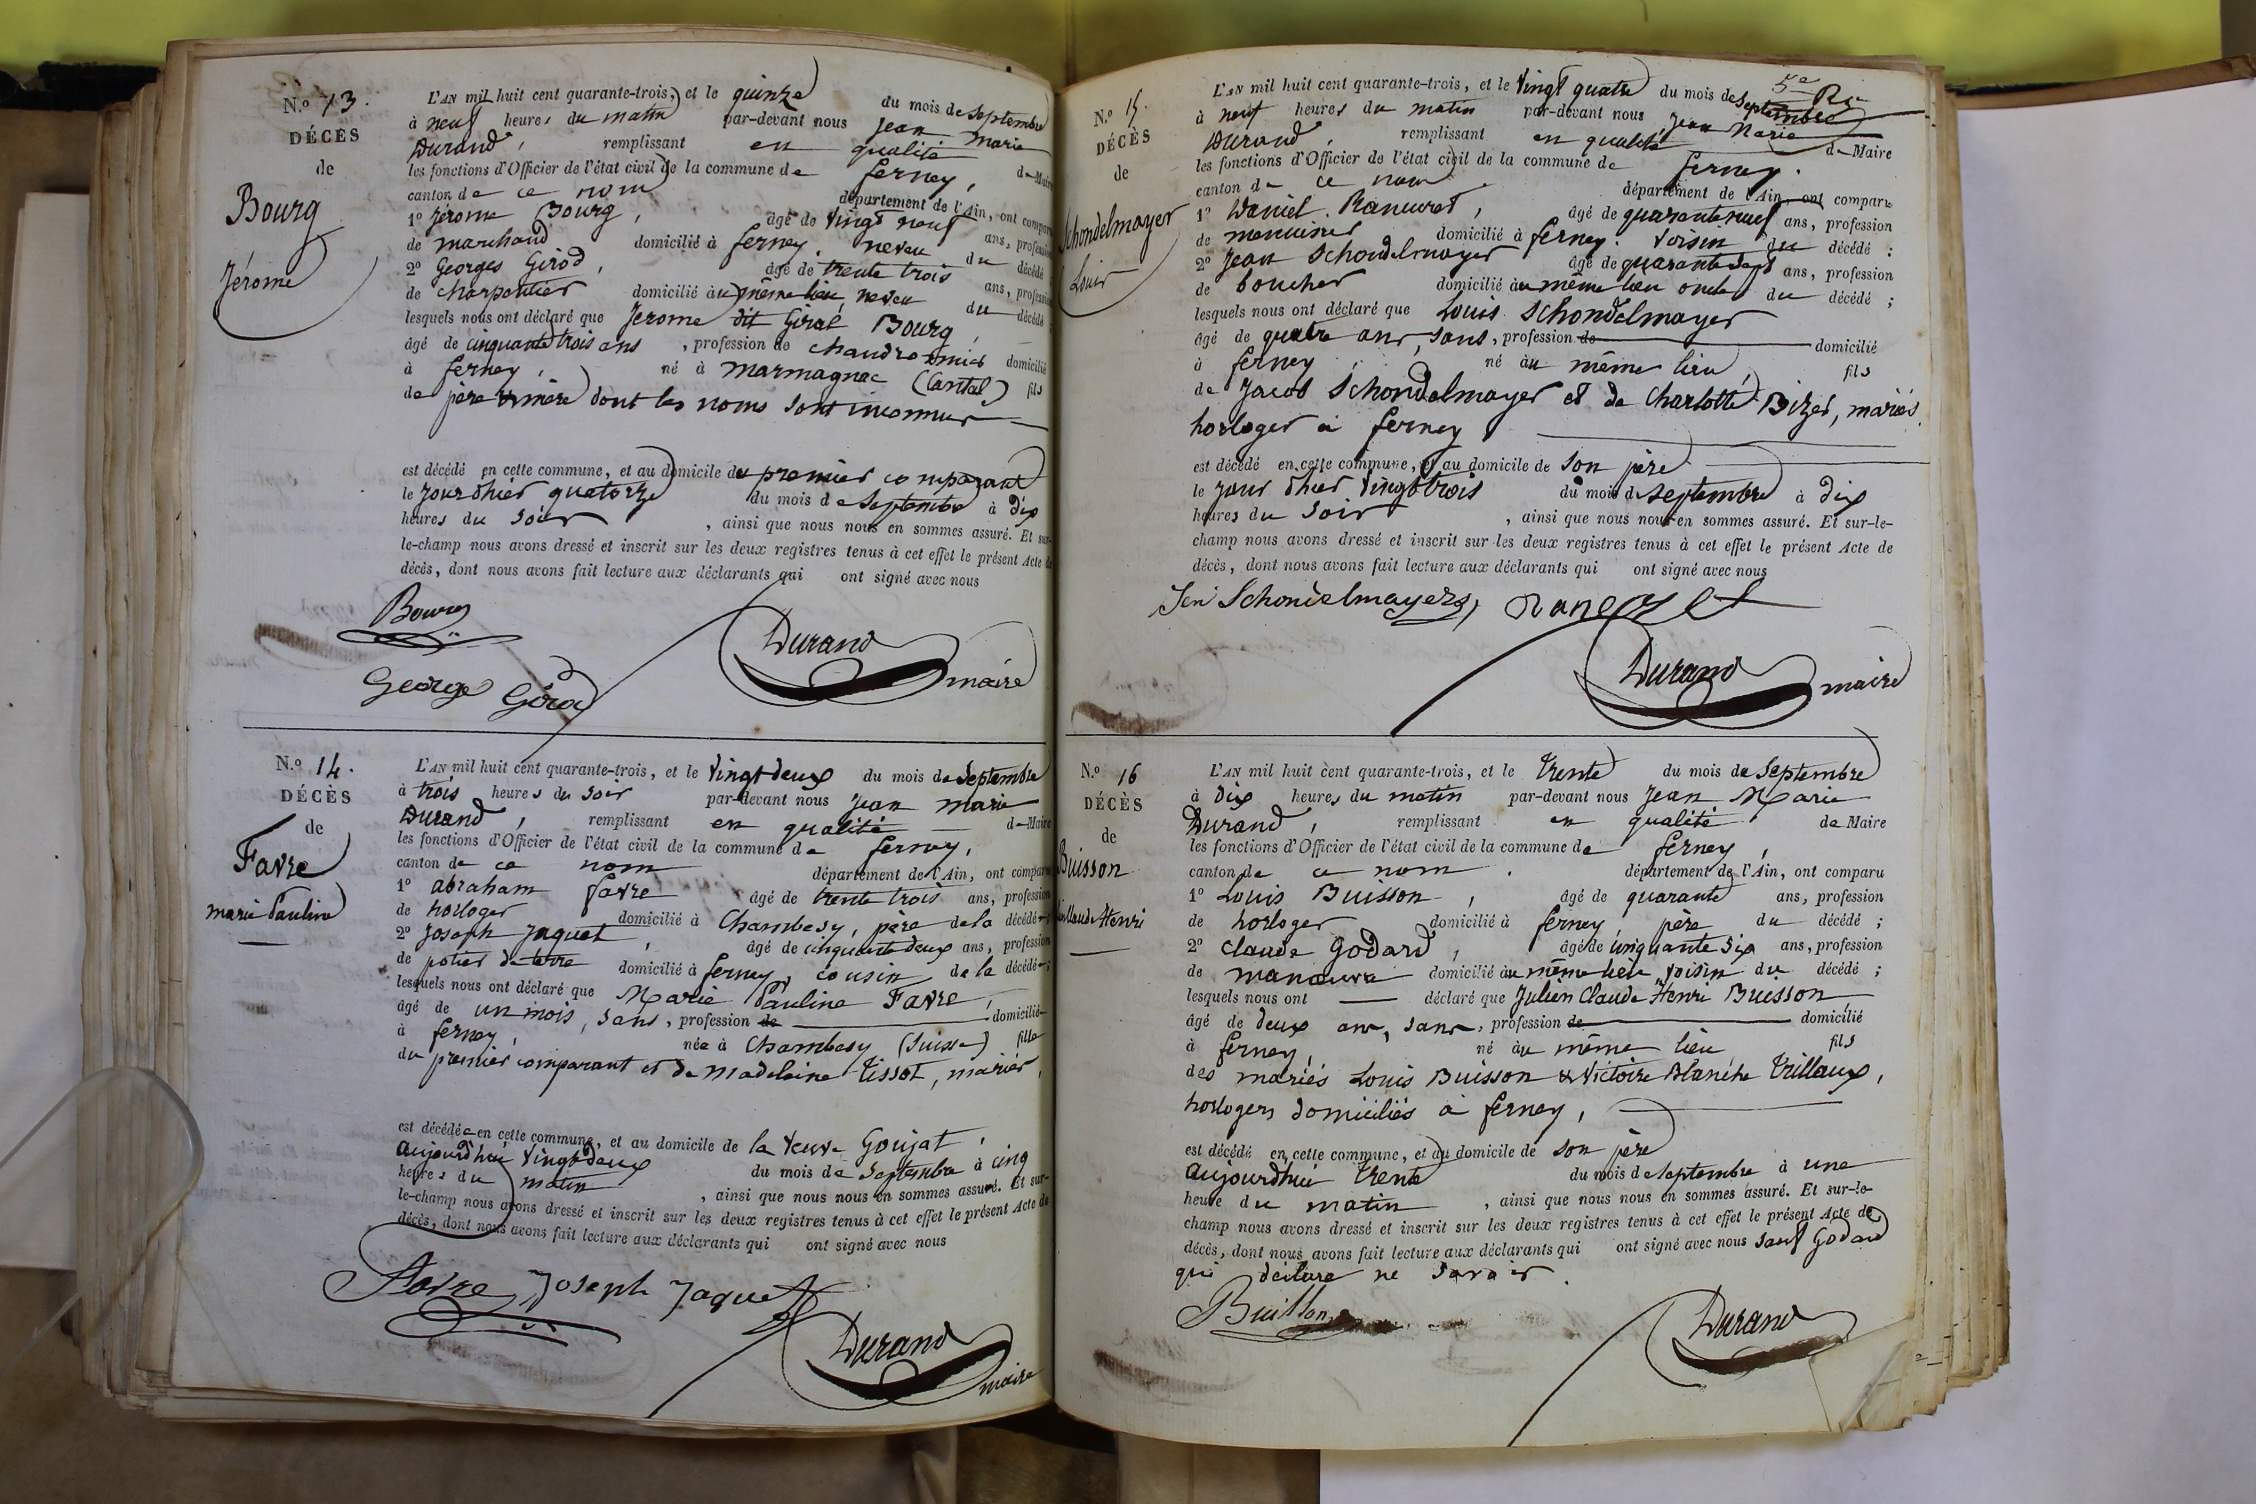 N.º 13.
DÉCÈS
de
Bourg
Jérome
L'AN mil huit cent quarante-trois, et le quinze du mois de Septembre
à neuf heures du matin par-devant nous Jean Marie
Durand, remplissant en qualité de Maire
les fonctions d'Officier de l'état civil de la commune de ferney,
canton de ce nom département de l'Ain, ont comparu
1º Jérome Bourg, âgé de vingt neuf ans, profession
de marchand domicilié à ferney. neveu du décédé
2º Georges Girod, âgé de trente trois ans, profession
de charpentier domicilié au même lieu, neveu du décédé ;
lesquels nous ont déclaré que Jerome dit Giral Bourg,
âgé de cinquante trois ans, profession de chaudronnier domicilié
à ferney, né à marmagnac (Cantal) fils
de père & mère dont les noms sont inconnus
est décédé en cette commune, et au domicile du premier comparant
le jour d'hier quatorze du mois de Septembre à dix
heures du soir, ainsi que nous nous en sommes assuré. Et sur-
le-champ nous avons dressé et inscrit sur les deux registres tenus à cet effet le présent Acte de
décès, dont nous avons fait lecture aux déclarants qui ont signé avec nous
Bourg
George Girod
Durand maire
N.º 14.
DÉCÈS
de
Favre
marie Pauline
L'AN mil huit cent quarante-trois, et le vingt deux du mois de Septembre
à trois heures du soir par-devant nous Jean Marie
Durand, remplissant en qualité de Maire
les fonctions d'Officier de l'état civil de la commune de ferney,
canton de ce nom département de l'Ain, ont comparu
1º abraham favre âgé de trente trois ans, profession
de horloger domicilié à Chambesy, père de la décédée ;
2º Joseph Jaquet, âgé de cinquante deux ans, profession
de potier de terre domicilié à ferney, cousin de la décédée ;
lesquels nous ont déclaré que Marie Pauline Favre,
âgé de un mois, sans, profession de domiciliée
à ferney, née à Chambesy (Suisse) fille
du premier comparant et de Madeleine Tissot, mariés,
est décédée en cette commune, et au domicile de la veuve Goujat,
aujourd'hui vingt deux du mois de Septembre à cinq
heures du matin, ainsi que nous nous en sommes assuré. Et sur-
le-champ nous avons dressé et inscrit sur les deux registres tenus à cet effet le présent Acte de
décès, dont nous avons fait lecture aux déclarants qui ont signé avec nous
Favre Joseph Jaquet
Durand
maire
5e
N.º 15.
DÉCÈS
de
Schondelmayer
Louis
L'AN mil huit cent quarante-trois, et le vingt quatre du mois de Septembre
à neuf heures du matin par-devant nous Jean Marie
Durand, remplissant en qualité de Maire
les fonctions d'Officier de l'état civil de la commune de ferney.
canton de ce nom département de l'Ain, ont comparu
1º Daniel Rancurel, âgé de quarante neuf ans, profession
de menuisier domicilié à ferney. voisin du décédé ;
2º Jean Schondelmayer âgé de quarante sept ans, profession
de boucher domicilié au même lieu oncle du décédé ;
lesquels nous ont déclaré que Louis Schondelmayer
âgé de quatre ans, sans, profession de domicilié
à ferney, né au même lieu, fils
de Jacob Schondelmayer et de Charlotte Bizet, mariés,
horloger à ferney
est décédé en cette commune, et au domicile de son père
le jour d'hier vingt trois du mois de septembre à dix
heures du soir, ainsi que nous nous en sommes assuré. Et sur-le-
champ nous avons dressé et inscrit sur les deux registres tenus à cet effet le présent Acte de
décès, dont nous avons fait lecture aux déclarants qui ont signé avec nous
Jen Schondelmayer Rancurel
Durand maire
N.º 16
DÉCÈS
de
Buisson
Claude Henri
L'AN mil huit cent quarante-trois, et le trente du mois de Septembre
à dix heures du matin par-devant nous Jean Marie
Durand, remplissant en qualité de Maire
les fonctions d'Officier de l'état civil de la commune de ferney,
canton de ce nom. département de l'Ain, ont comparu
1º Louis Buisson, âgé de quarante ans, profession
de horloger domicilié à ferney, père du décédé ;
2º Claude Godard, âgé de cinquante six ans, profession
de manœuvre domicilié au même lieu voisin du décédé ;
lesquels nous ont déclaré que Julien Claude Henri Buisson,
âgé de deux ans, sans, profession de domicilié
à ferney, né au même lieu fils
des mariés Louis Buisson & Victoire Blanche Trillaux,
horlogers domiciliés à ferney,
est décédé en cette commune, et au domicile de son père
aujourd'hui trente du mois de septembre à une
heure du matin, ainsi que nous nous en sommes assuré. Et sur-le-
champ nous avons dressé et inscrit sur les deux registres tenus à cet effet le présent Acte de
décès, dont nous avons fait lecture aux déclarants qui ont signé avec nous sauf Godard
qui déclare ne savoir.
Buisson
Durand